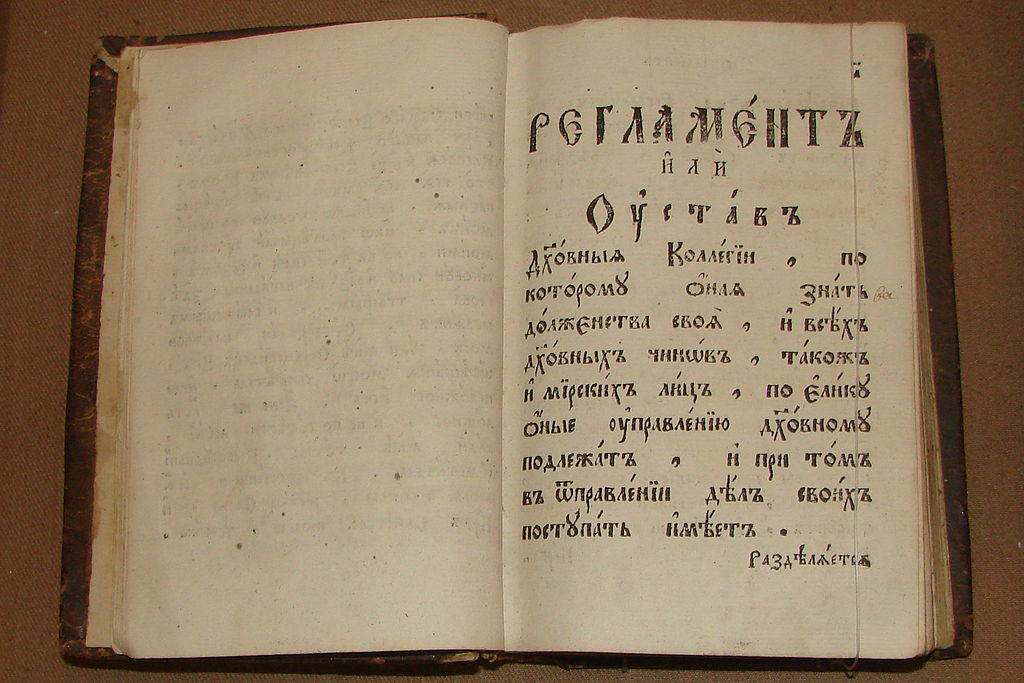 і҃
РЕГЛАМЕ́НТЪ
и҆лѝ
Оу҆ста́въ
дх҃о́вныѧ Колле́гїи , по
кото́рому ѻ҆́наѧ зна́ть
до́лженства своѧ̀ , и҆ всѣ́хъ
дх҃о́вныхъ чинѡ́въ , та́кожъ
и҆ мїрски́хъ ли́цъ , по є҆ли́кꙋ
ѻ҆́ные оу҆правле́нїю дх҃о́вному
подлежа́тъ , и҆ при то́мъ
въ ѿправле́нїи дѣ́лъ свои́хъ
поступа́ть и҆мѣ́етъ .
Раздѣлѧ́етсѧ